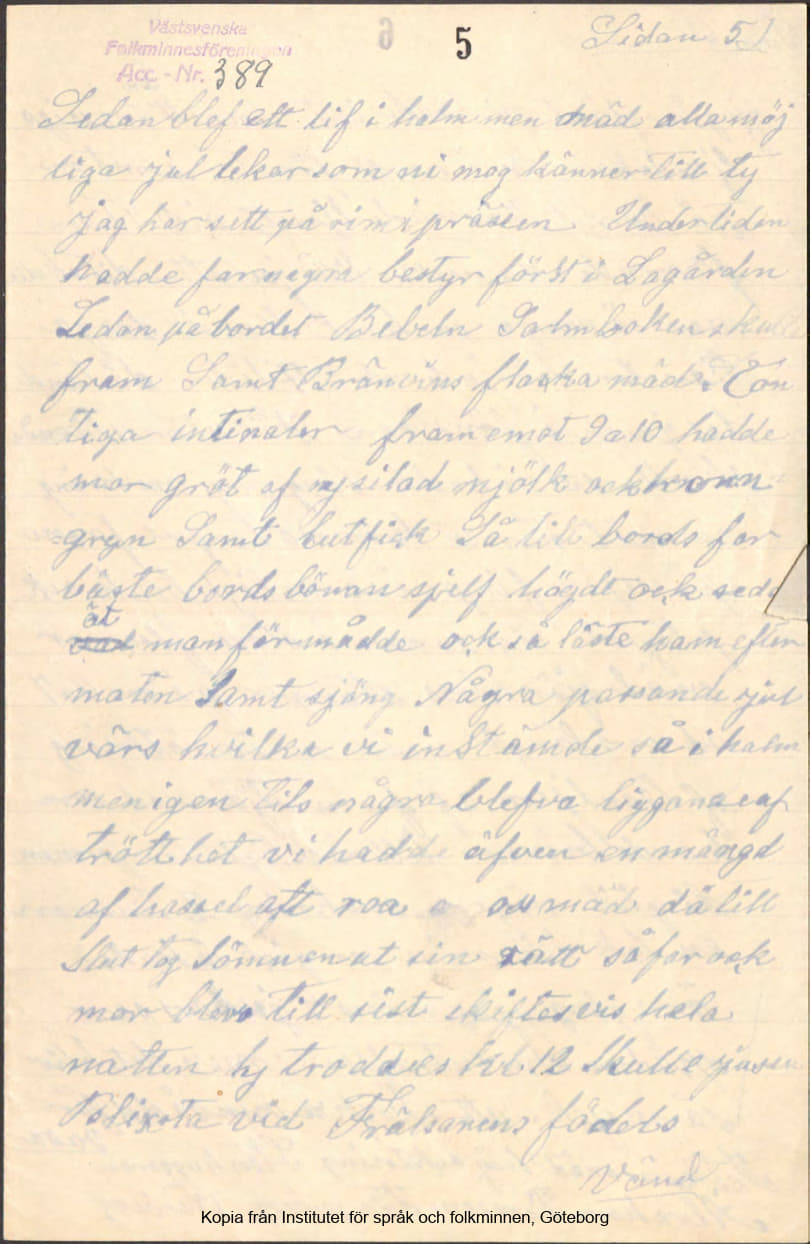 Västsvenska
Folkminnesföreningen
Acc. - Nr. 389
5
Sidan 5)
Sedan blef ett lif i halm men mäd alla möj
liga jul lekar som ni mog känner till ty
jag har sett på rim i prässen Undertiden
hadde far några bestyr först i Lagården
Sedan på bordet Bebeln Salmboken skulle
fram Samt Bränvins flaska mäd
tiga intinaler fram emot 9 a 10 hadde
mor gröt af nysilad mjölk ock korn
gryn Samt lutfisk Så till bords far
läste bords bönan sjelf högdt ock seda
åt man förmådde ock så läste ham efter
maten Samt sjöng Några passande jul
värs hvilka vi instämde så i halm
men igen tils några blefvo liggande af
trötthet vi hadde äfven en mängd
af hassel aft roa oss mäd då till
Slut tog Sömnen ut sin rätt så far ock
mor blevo till sist skiftesvis hela
natten ty troddes kl 12 Skulle jusen
Blixta vid Frälsarens födels
Vänd
Kopia från Institutet för språk och folkminnen, Göteborg